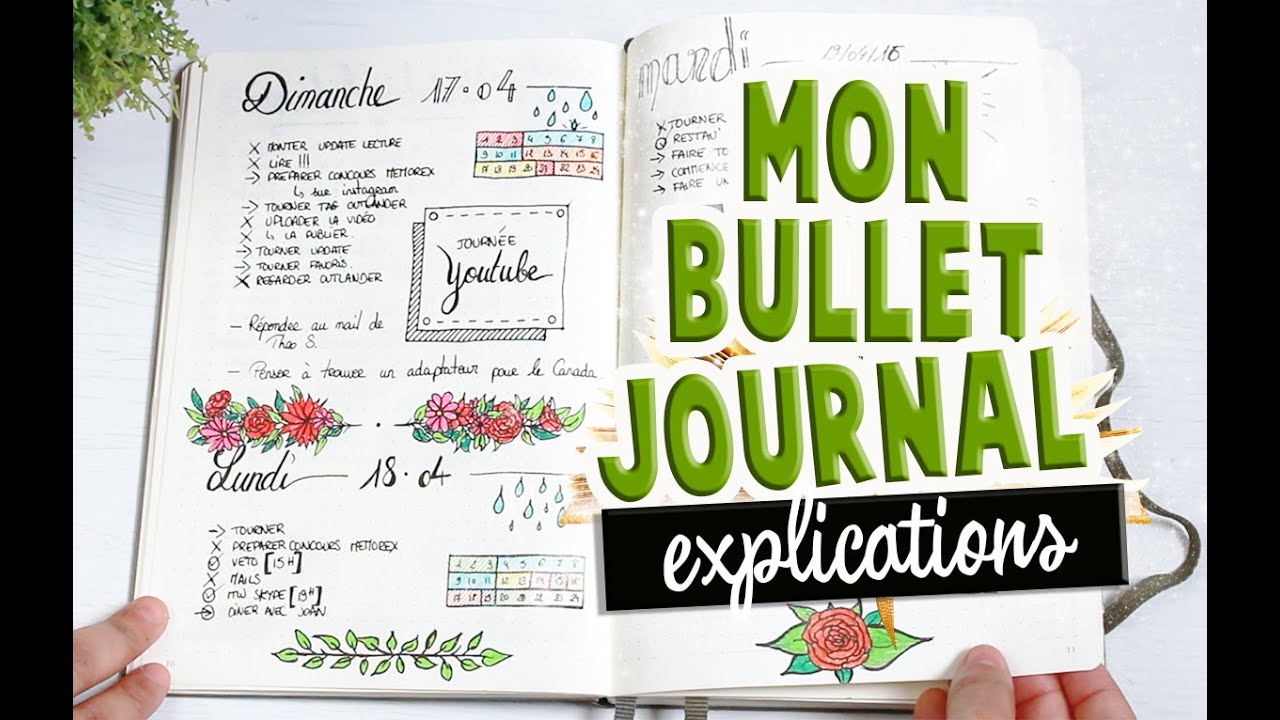 Dimanche 17.04
X MONTER UPDATE LECTURE
X LIRE !!!
→ PREPARER CONCOURS MEMOREX
↳ sur instagram
→ TOURNER TAG OUTLANDER
X UPLOADER LA VIDÉO
X ↳ LA PUBLIER.
→ TOURNER UPDATE
→ TOURNER FAVORIS.
X REGARDER OUTLANDER
1 2 3 4 5 6 7 8
9 10 11 12 13 14 15 16
17 18 19 20 21 22 23 24
JOURNÉE
Youtube
- Répondre au mail de
Theo S.
- Penser à trouver un adaptateur pour le Canada
Lundi 18.04
→ TOURNER
X PREPARER CONCOURS MEMOREX
VETO [15H]
X MAILS
MW SKYPE [19H]
DINER AVEC JOAN
1 2 3 4 5 6 7 8
9 10 11 12 13 14 15 16
17 18 19 20 21 22 23 24
10
mardi 19/04/16
X TOURNER
RESTAU'
→ FAIRE TO
→ COMMENCE
→ FAIRE UN
11
MON
BULLET
JOURNAL
explications